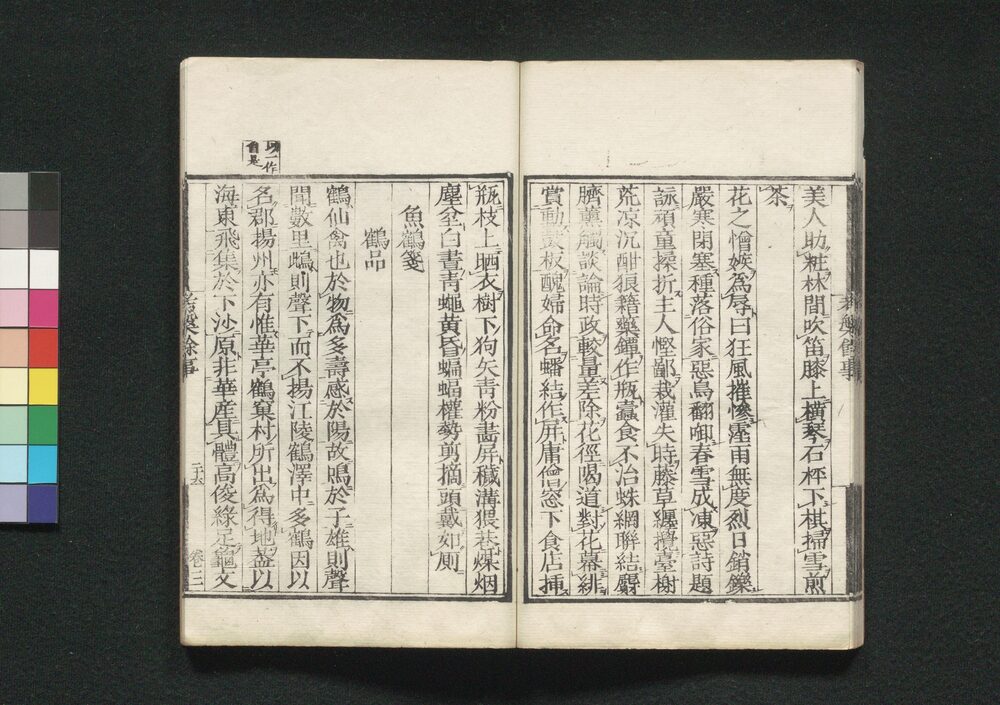 美人助粧林間吹笛膝上橫琴石枰下棋掃雪煎
茶
花之憎嫉爲辱曰狂風摧慘霪雨無度烈日銷鑠
嚴寒閉塞種落俗家惡鳥翻啣春雪成凍惡詩題
詠頑童操折主人慳鄙栽灌失時藤草纏攪臺榭
荒凉沉酣狼籍藥鐔作瓶蠧食不治蛛網聯結麝
臍薰觸談論時政較量差除花徑喝道對花幕緋
賞動鼓板醜婦命名蟠結作屏庸僧窓下食店挿
瓶枝上晒衣樹下狗矢靑粉畵屏穢溝猥巷煤烟
塵坌白晝靑蠅黃昏蝙蝠權勢剪摘頭戴如厠
魚鶴箋
鶴品
鶴仙禽也於物爲多壽感於陽故鳴於子雄則聲
聞數里鴟則聲下而不揚江陵鶴澤中多鶴因以
名郡揚州亦有惟華亭鶴窠村所出爲得地葢以
海東飛集於下沙原非華産具體高俊緣足龜文
一作
考槃餘事
二十六
卷三